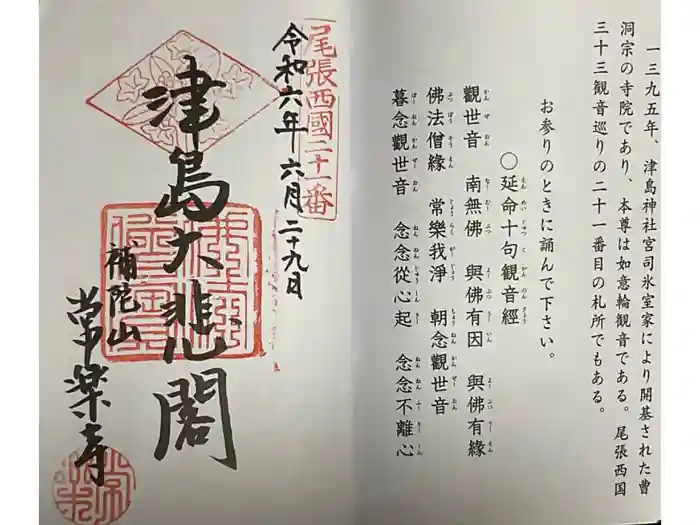 一三九五年、津島神社宮司氷室家により開基された曹
洞宗の寺院であり、本尊は如意輪観音である。尾張西国
三十三観音巡りの二十一番目の札所でもある。
お参りのときに誦んで下さい。
〇延命十句観音經
觀世音 南無佛 與佛有因 與佛有緣
佛法僧緣 常樂我淨 朝念觀世音
暮念觀世音 念念從心起 念念不離心
尾張西國二十一番
令和六年六月二十九日
津島大悲閣
補陀山
常楽寺